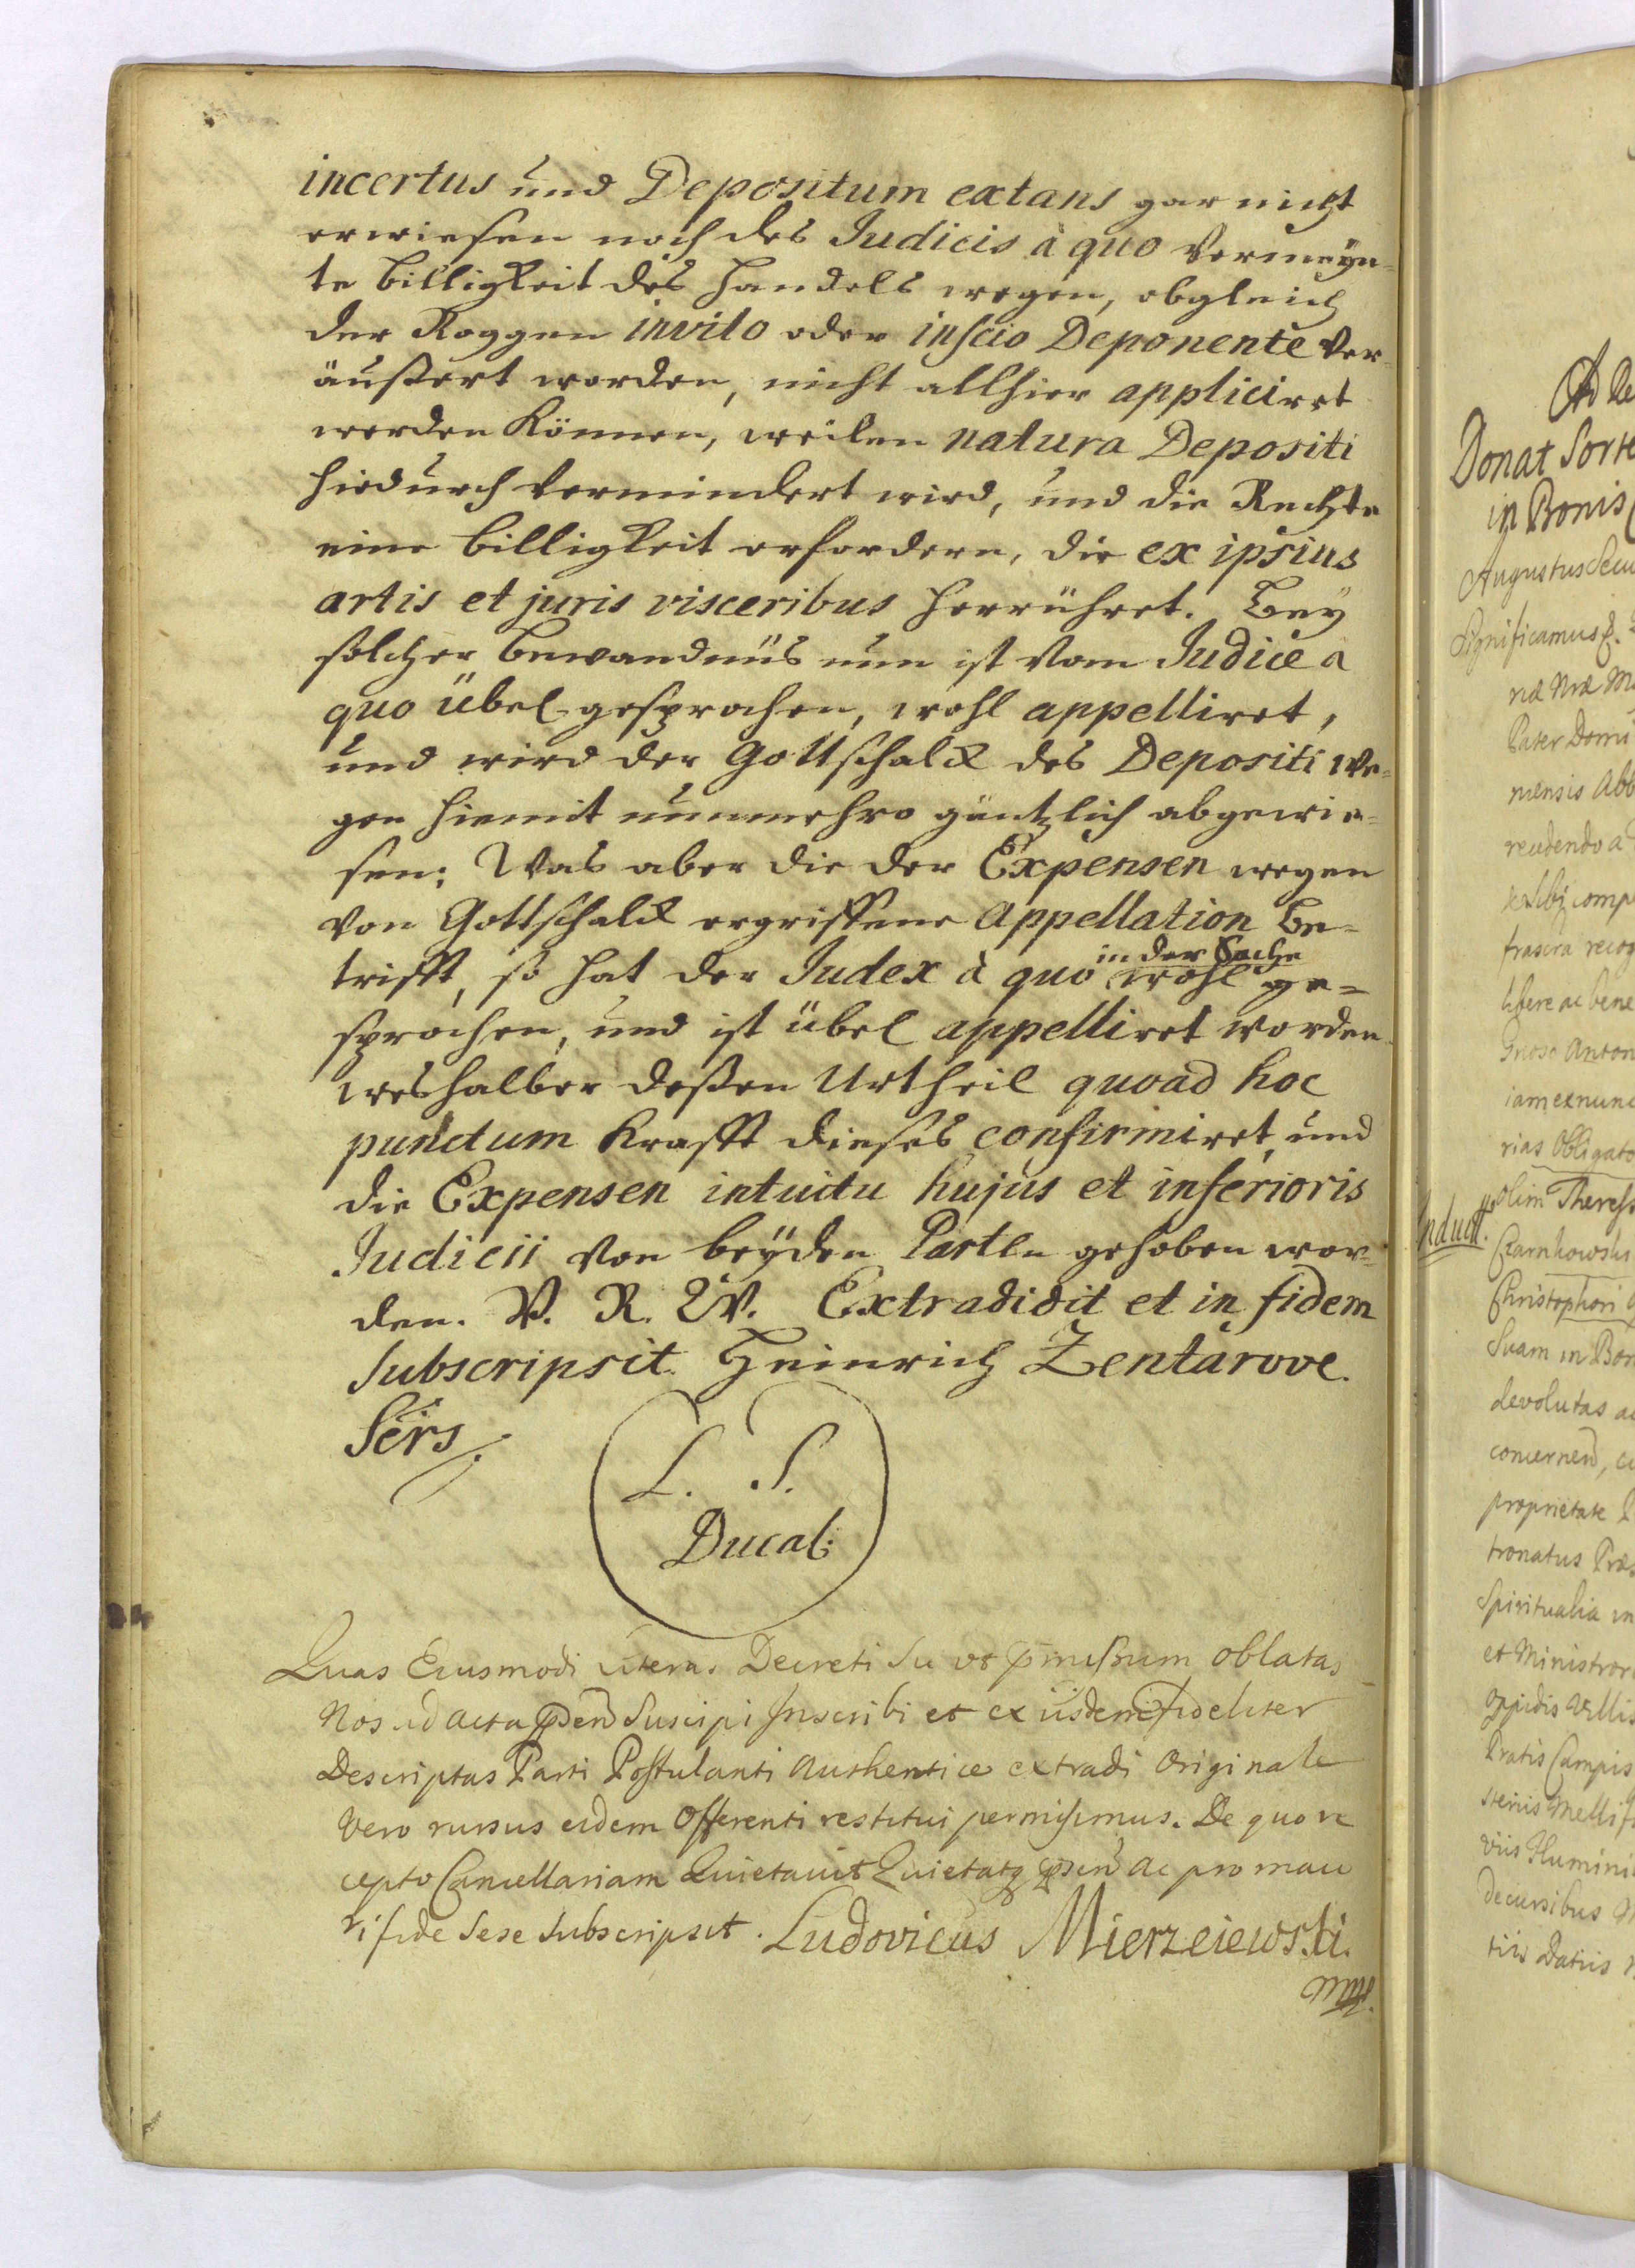 incertus und Depositum extans gar nicht
erwiesen noch des Judicis à quo vermeyn=
te billigkeit des Handels wegen, obgleich
der Roggen invito oder inscio Deponente ver-
äußert worden, nicht allhier appliciret
werden können, weilen natura Depositi
hiedurch vermindert wird, und die Rechte
eine billigkeit erfordern, die ex ipsius
artis et juris visceribus herrühret. Bey
solcher bewandnüs nun ist vom Judice à
quo übel gesprochen, wohl appelliret,
und wird der Gottschalck des Depositi we=
gen hiemit nunmehro gäntzlich abgewie=
sen; Was aber die der Expensen wegen
von Gottschalck ergriffene Appellation be=
trifft, so hat der Judex à quo in der Sache wohl ge=
sprochen, und ist übel appelliret worden
weshalber deßen Urtheil quoad hoc
punctum krafft dieses confirmiret, und
die Expensen intuitu hujus et inferioris
Judicii von beyden Parten gehoben wor=
den. V. R. W. Extradidit et in fidem
subscripsit. Heinrich Zentarove.
Secrs
L. S.
Ducal:
Quas Eiusmodi literas Decreti Su ut pmissum oblatas
Nos ad acta psen Suscipi Inscribi et ex iisdem fideliter
Descriptas Parti Postulanti Authentice extradi Originale
vero rursus eidem Offerenti restitui permisimus. De quo re
cepto Cancellariam Quietavit Quietatq psen ac pro maio
ri fide Sese Subscripsit. Ludovicus Mierzeiewski.
mp.
Donat Sorte
in Bonis
Augustus Secu
Significamus
Pater Domi
mensis Abb
libere ac bene
Anton
iam ex nunc
rias Obligato
olim Theres
Induct.
Czarnkowski
Christophori
Suam in Bon
devolutas a
concernen, c
proprietate
tronatus Præ
Spiritualia in
et Ministror
Oppidis Villis
Pratis Campis
Mellif
viis Flumini
Decursibus
tiis Datiis